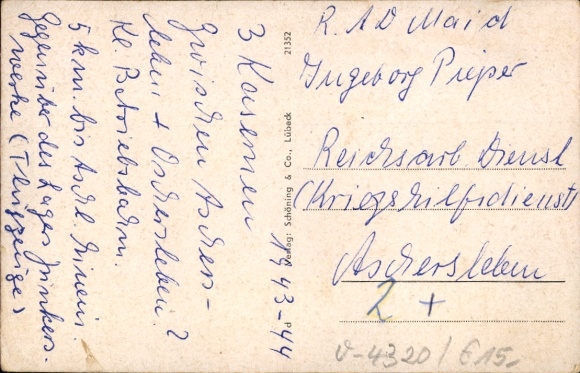 3 Kasernen
zwischen Aschers-
leben + Oschersleben?
Kl. Betriebsbahn.
5 km. bis Aschl. hinein.
Gegenüber des Lagers Junkers-
werke (Flugzeuge)
1943-44
Verlag: Schöning & Co., Lübeck
21352
R. A D Maid
Ingeborg Pieper
Reichsarb. Dienst
(Kriegshilfsdienst)
Aschersleben
2 +
V-4320/€15.-